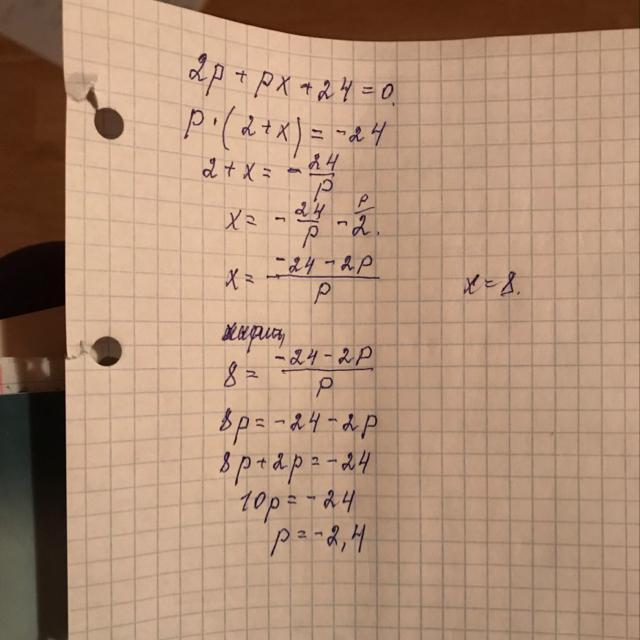 2p + px + 24 = 0.
p · (2 + x) = -24
2 + x = - 24/p
x = - 24/p - 2.
x = (-24 - 2p)/p
x = 8.
8 = (-24 - 2p)/p
8p = -24 - 2p
8p + 2p = -24
10p = -24
p = -2,4